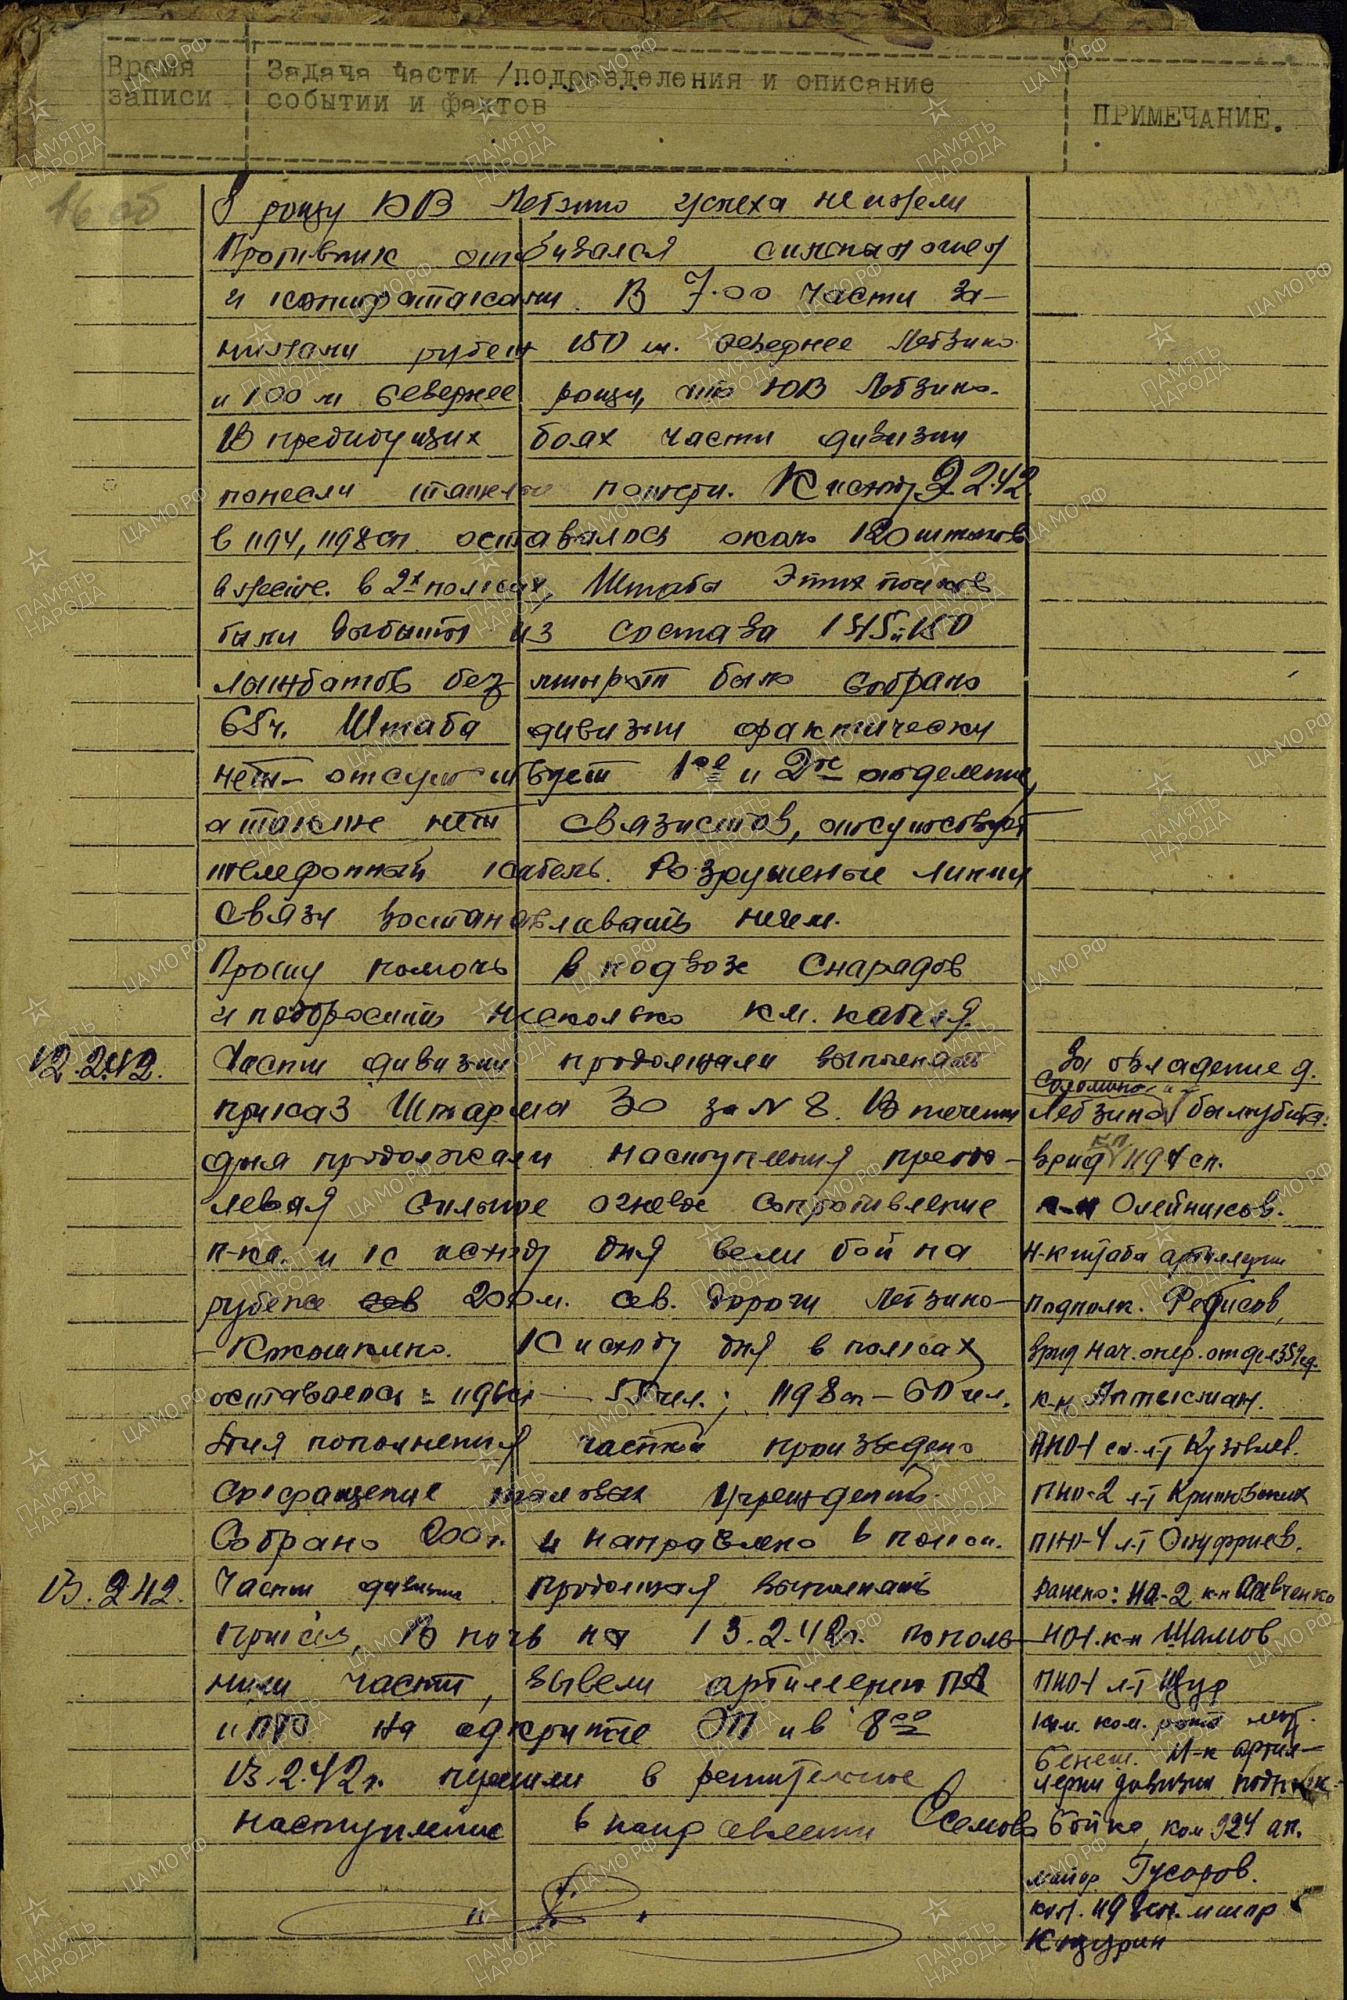 Время записи
Задача части /подразделения и описание
событии и фактов
ПРИМЕЧАНИЕ.
16 об
В рощу ЮВ Лебзино успеха не имели
Противник отбивался сильным огнем
и контратаками. В 7.00 части за-
нимали рубеж 150 м. севернее Лебзино
и 100 м севернее рощи, что ЮВ Лебзино.
В предидущих боях части дивизии
понесли тяжелые потери. К исходу 9.2.42
в 1194, 1198 сп. оставалось около 120 штыков
в 2х полках, Штабы этих полков
были выбиты из состава
лыжбатов без было собрано
65ч. Штаба дивизии фактически
нет - отсутствует 1ое и 2ое отделение,
а также нет связистов, отсутствует
телефонный кабель. Разрушеные линии
связи востанавливать нечем.
Прошу помочь в подвозе снарядов
и подбросить несколько км. кабеля.
12.2.42. Части дивизии продолжали выполнять
приказ Штарма 30 за № 8. В течении
дня продолжали наступления преодо-
левая сильное огневое сопротивление
п-ка. и к исходу дня вели бой на
рубеже сев 200м. сев. дороги Лебзино-
- Кокошкино. К исходу дня в полках
оставалось: 1194сп - 55 чел.; 1198 сп - 60 чел.
Для пополнения частей произведено
сокращение тыловых учреждений.
Собрано 200ч. и направлено в полки.
13.2.42. Части дивизии продолжая выполнять
приказ, В ночь на 13.2.42г. пополь-
нили части, вывели артиллерию ПА
и ПТО на открытые ОП и в 8 00
13.2.42г. перешли в решительное
наступление в направлении Соломино
За овладение д.
Соломино и
Лебзино были убиты:
врид кп 1194 сп.
к-н Олейников.
н-к штаба артиллерии
подполк. Ревисов,
врид нач. опер. отдел 359сд.
к-н Алтысман.
ПНО-1 ст. л-т Кузовлев.
ПНО-2 л-т
ПНО-4 л-т Онуфриев.
Ранено: НО-2 к-н Савченко
НО1. к-н Шамов
ПНО-1 л-т Щур
ком. роты
Н-к артил-
лерии дивизии подполк.
Бойко, ком 924 ап.
майор Гусаров.
ком. 1198сп. майор
Кацурин